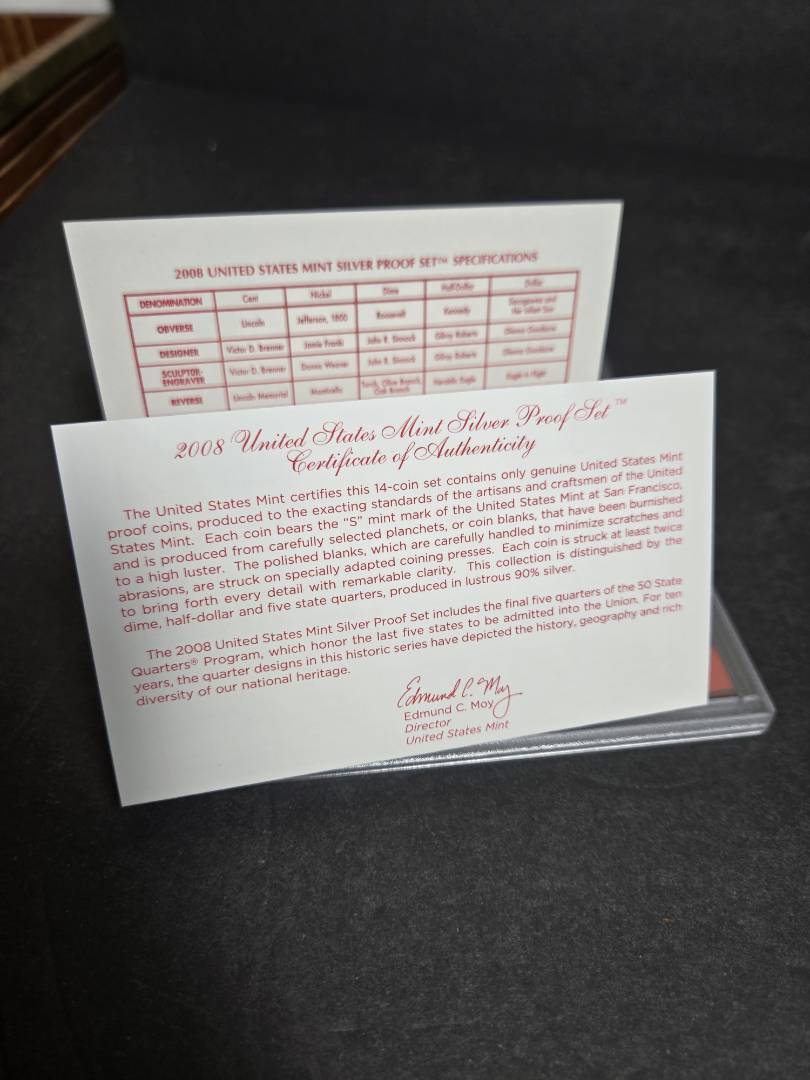 2008 UNITED STATES MINT SILVER PROOF SET™ SPECIFICATIONS
DENOMINATION Cent Nickel Dime Half-Dollar Dollar
OBVERSE Lincoln Jefferson, 1800 Roosevelt Kennedy Sacagawea and
DESIGNER Victor D. Brenner John R. Sinnock Gilroy Roberts Glenna Goodacre
SCULPTOR-
ENGRAVER Victor D. Brenner Donna Weaver John R. Sinnock Gilroy Roberts Glenna Goodacre
REVERSE Lincoln Memorial Monticello Torch, Olive Branch, Heraldic Eagle Eagle in Flight
Oak Branch
2008 United States Mint Silver Proof Set™
Certificate of Authenticity
The United States Mint certifies this 14-coin set contains only genuine United States Mint
proof coins, produced to the exacting standards of the artisans and craftsmen of the United
States Mint. Each coin bears the “S” mint mark of the United States Mint at San Francisco,
and is produced from carefully selected planchets, or coin blanks, that have been burnished
to a high luster. The polished blanks, which are carefully handled to minimize scratches and
abrasions, are struck on specially adapted coining presses. Each coin is struck at least twice
to bring forth every detail with remarkable clarity. This collection is distinguished by the
dime, half-dollar and five state quarters, produced in lustrous 90% silver.
The 2008 United States Mint Silver Proof Set includes the final five quarters of the 50 State
Quarters® Program, which honor the last five states to be admitted into the Union. For ten
years, the quarter designs in this historic series have depicted the history, geography and rich
diversity of our national heritage.
Edmund C. Moy
Edmund C. Moy
Director
United States Mint